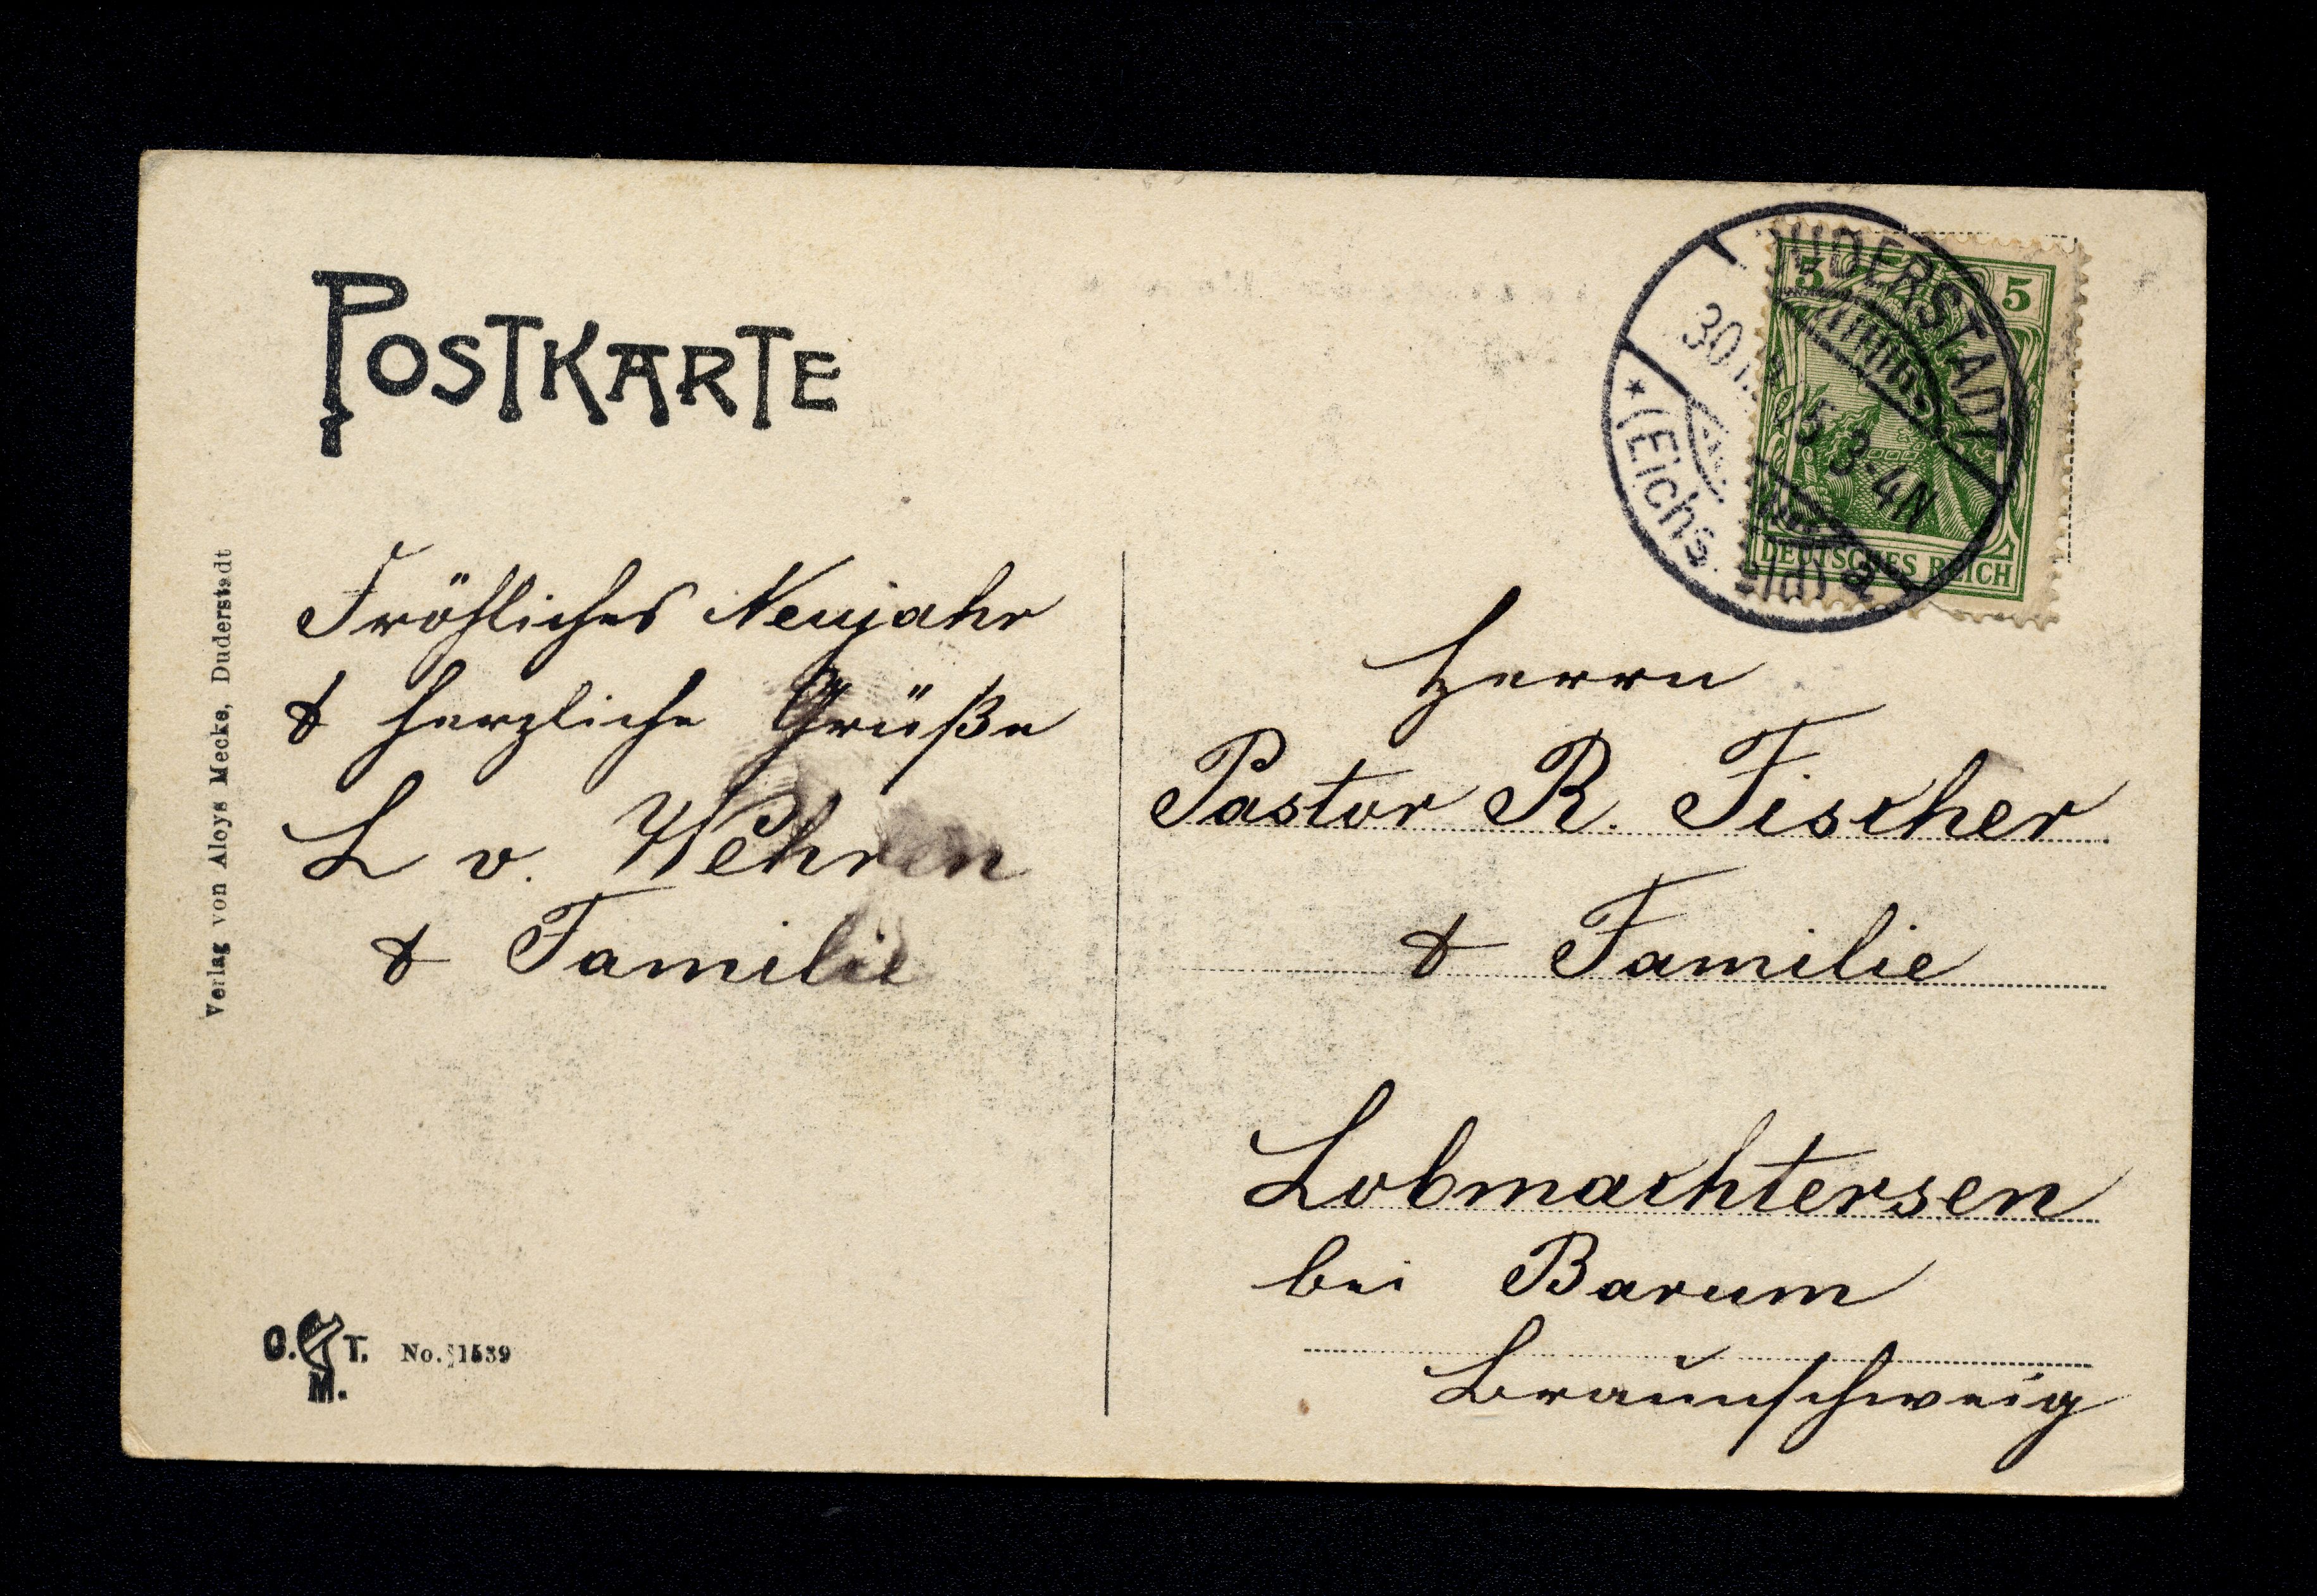 POSTKARTE
Verlag von Aloys Mecke, Duderstadt
Fröhliches Neujahr
& herzliche Grüße
L v. Wehren
& Familie
C. T.
M.
No. 1539
DUDERSTADT
30 5 3-4N
* (Eichsfeld) a
5 5
DEUTSCHES REICH
Herrn
Pastor R. Fischer
& Familie
Lobmachtersen
bei Barum
Braunschweig